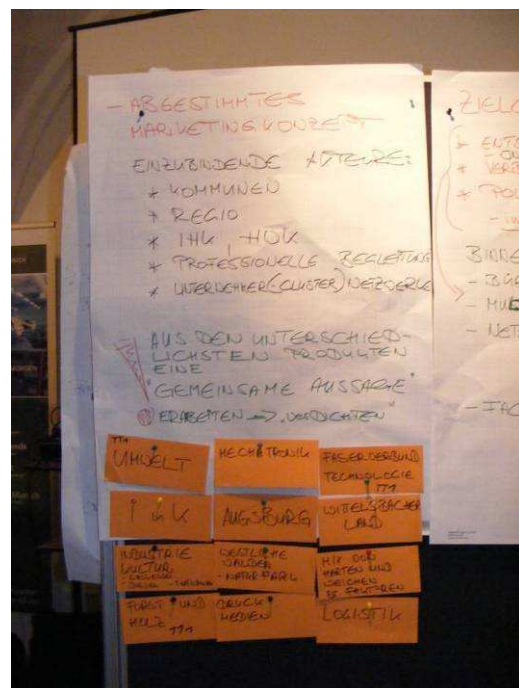 - ABGESTIMMTES
MARKETINGKONZEPT
EINZUBINDENDE AKTEURE:
* KOMMUNEN
* REGIO
* IHK, HWK
* PROFESSIONELLE BEGLEITUNG
* UNTERNEHMER(-CLUSTER)NETZWERKE
AUS DEN UNTERSCHIED-
LICHSTEN PRODUKTEN
EINE
"GEMEINSAME AUSSAGE"
ERARBEITEN => "VERDICHTEN"
UMWELT
MECHATRONIK
FASERVERBUND
TECHNOLOGIE
I u K
AUGSBURG
WITTELSBACHER
LAND
INDUSTRIE
KULTUR
WESTLICHE
WÄLDER
- NATURPARK
MIX DER
HARTEN UND
WEICHEN
FAKTOREN
FORST UND
HOLZ
DRUCK
MEDIEN
LOGISTIK
ZIELG
- BÜR
- NET